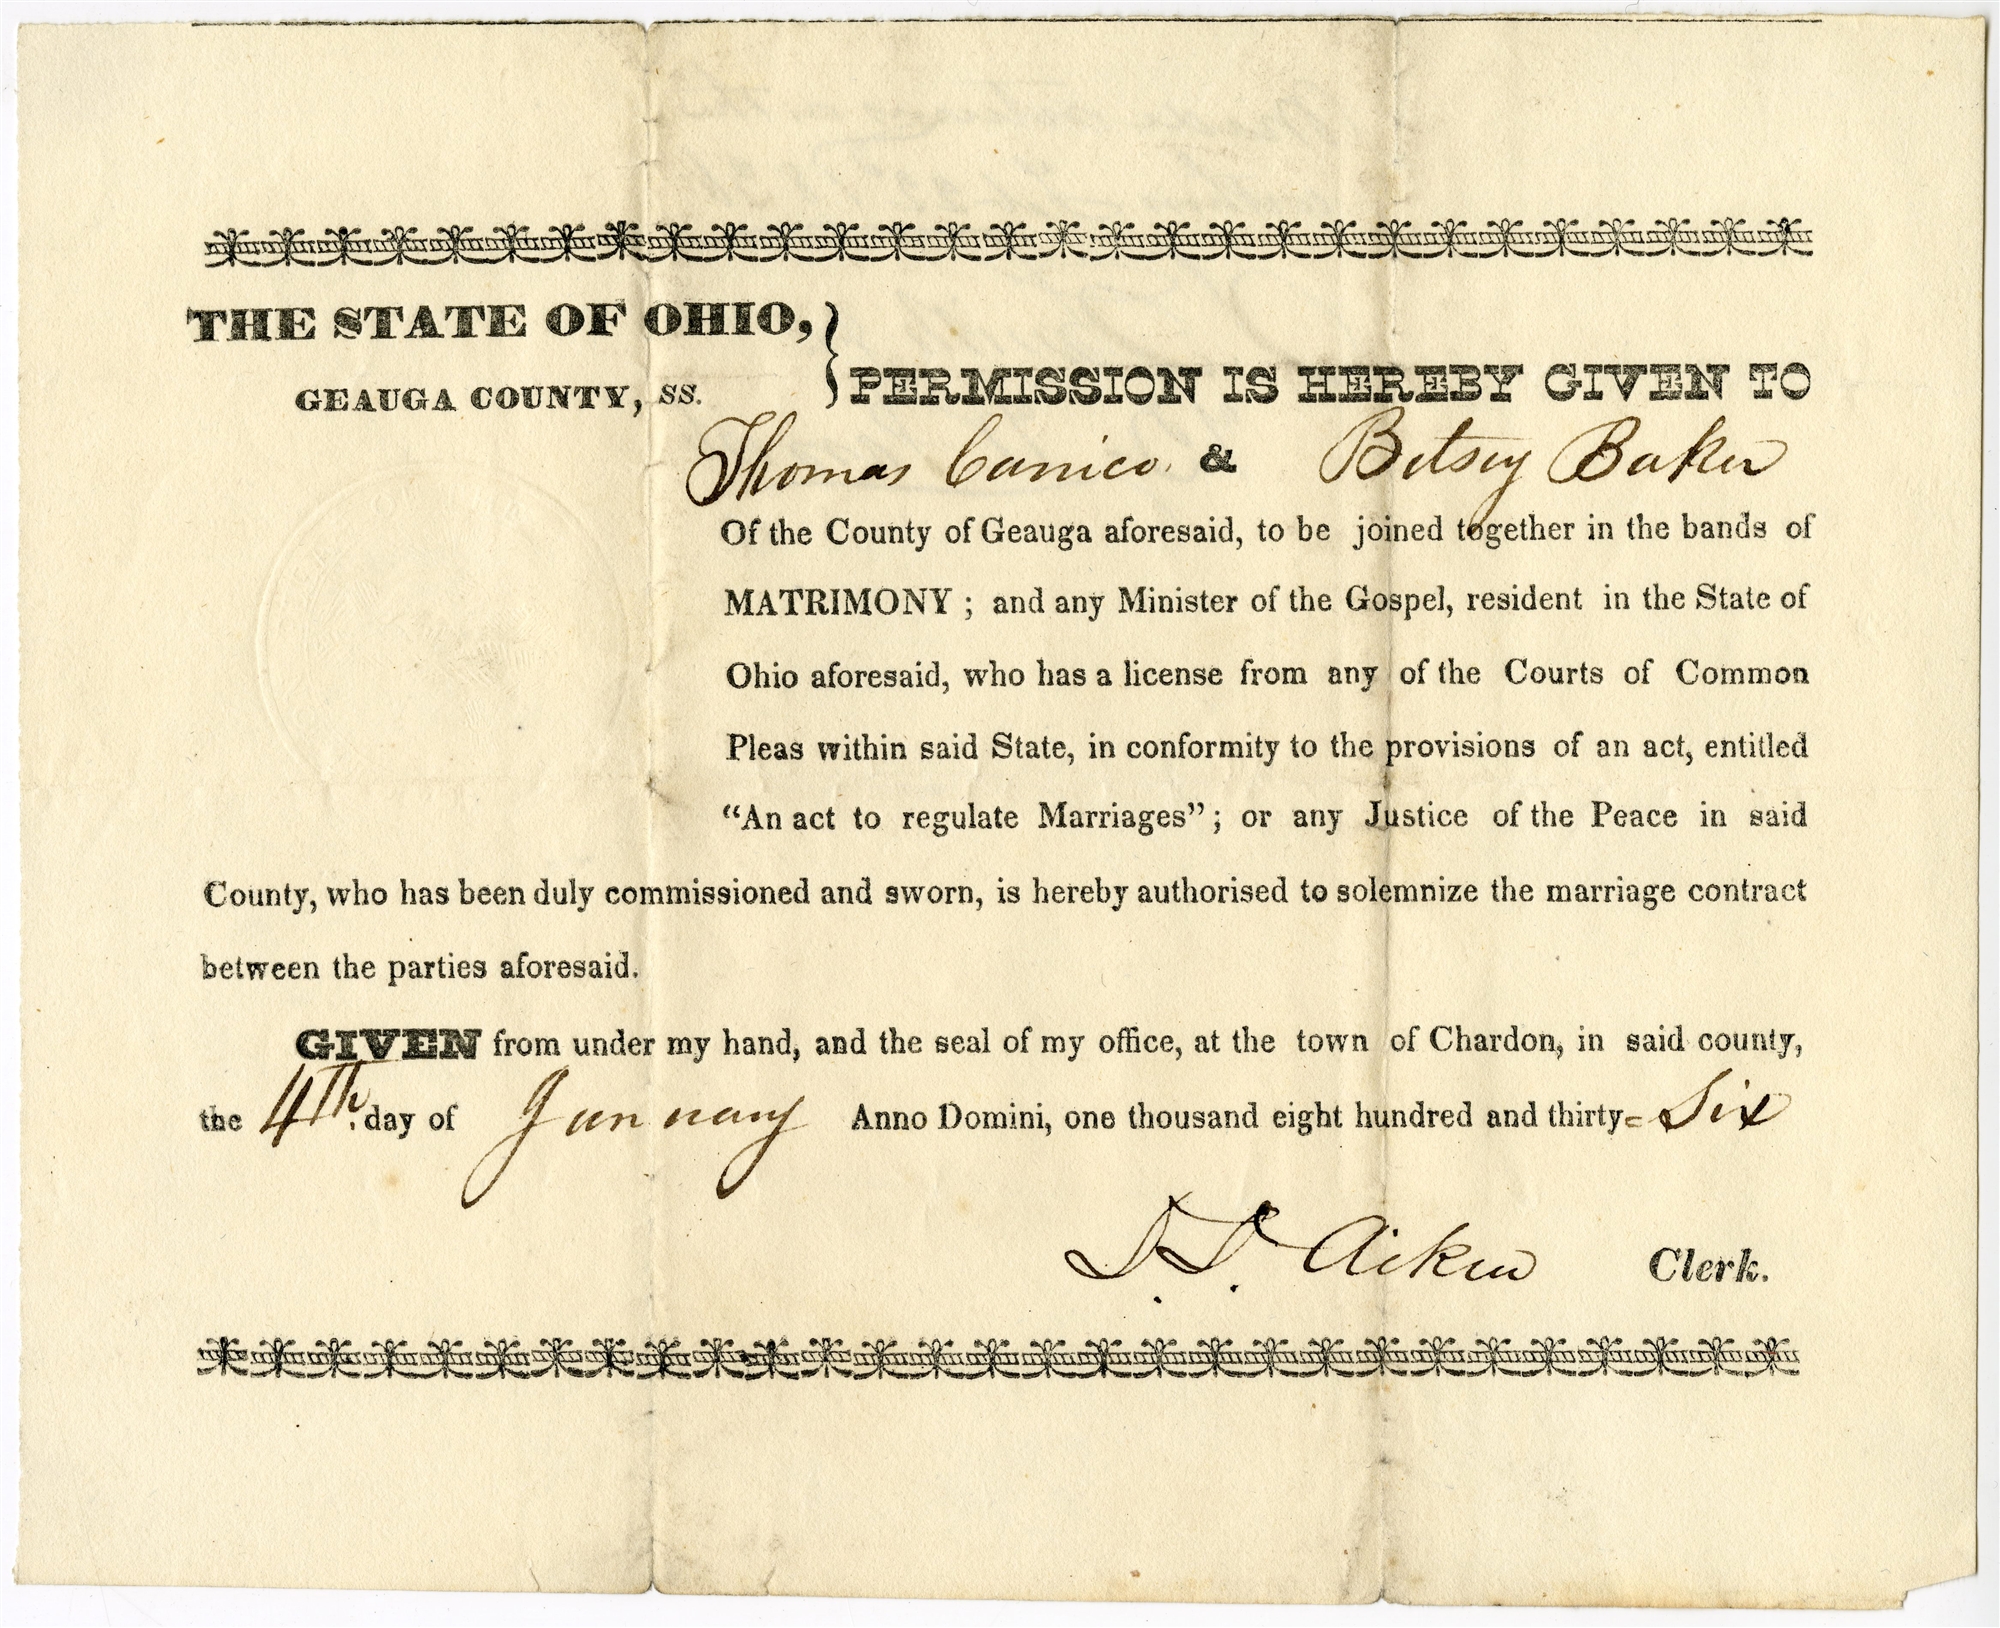 THE STATE OF OHIO,
GEAUGA COUNTY, SS.
PERMISSION IS HEREBY GIVEN TO
Thomas Carrico & Betsey Baker
Of the County of Geauga aforesaid, to be joined together in the bands of
MATRIMONY ; and any Minister of the Gospel, resident in the State of
Ohio aforesaid, who has a license from any of the Courts of Common
Pleas within said State, in conformity to the provisions of an act, entitled
“An act to regulate Marriages”; or any Justice of the Peace in said
County, who has been duly commissioned and sworn, is hereby authorised to solemnize the marriage contract
between the parties aforesaid.
GIVEN from under my hand, and the seal of my office, at the town of Chardon, in said county,
the 4Th. day of January Anno Domini, one thousand eight hundred and thirty- Six
Aiken Clerk.